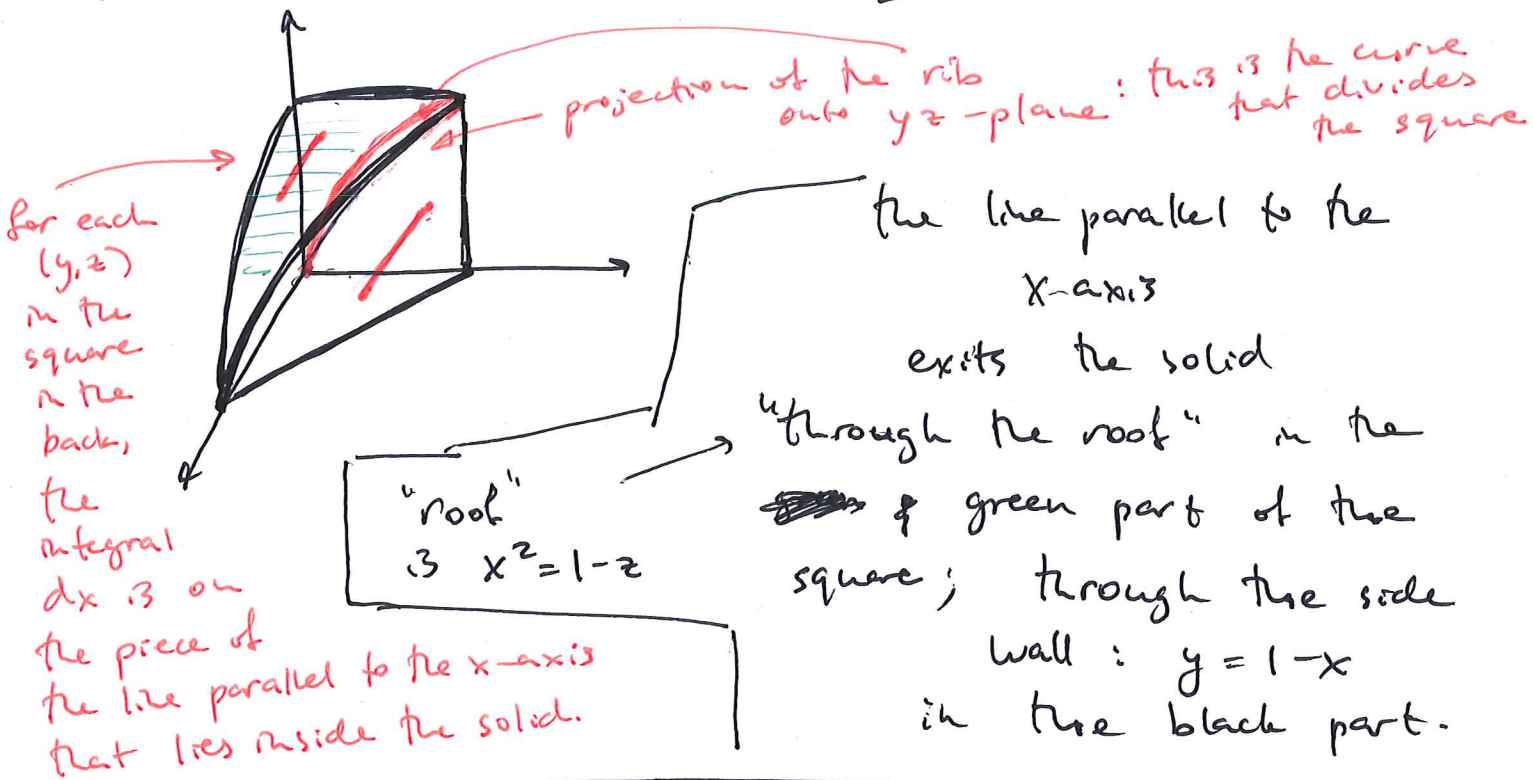 projection of the rib
onto yz-plane : this is the curve
that divides
the square
for each
(y,z)
in the
square
in the
back,
the
integral
dx is on
the piece of
the line parallel to the x-axis
that lies inside the solid.
"roof"
is x² = 1 - z
the line parallel to the
x-axis
exits the solid
"through the roof" in the
green part of the
square; through the side
wall : y = 1 - x
in the black part.